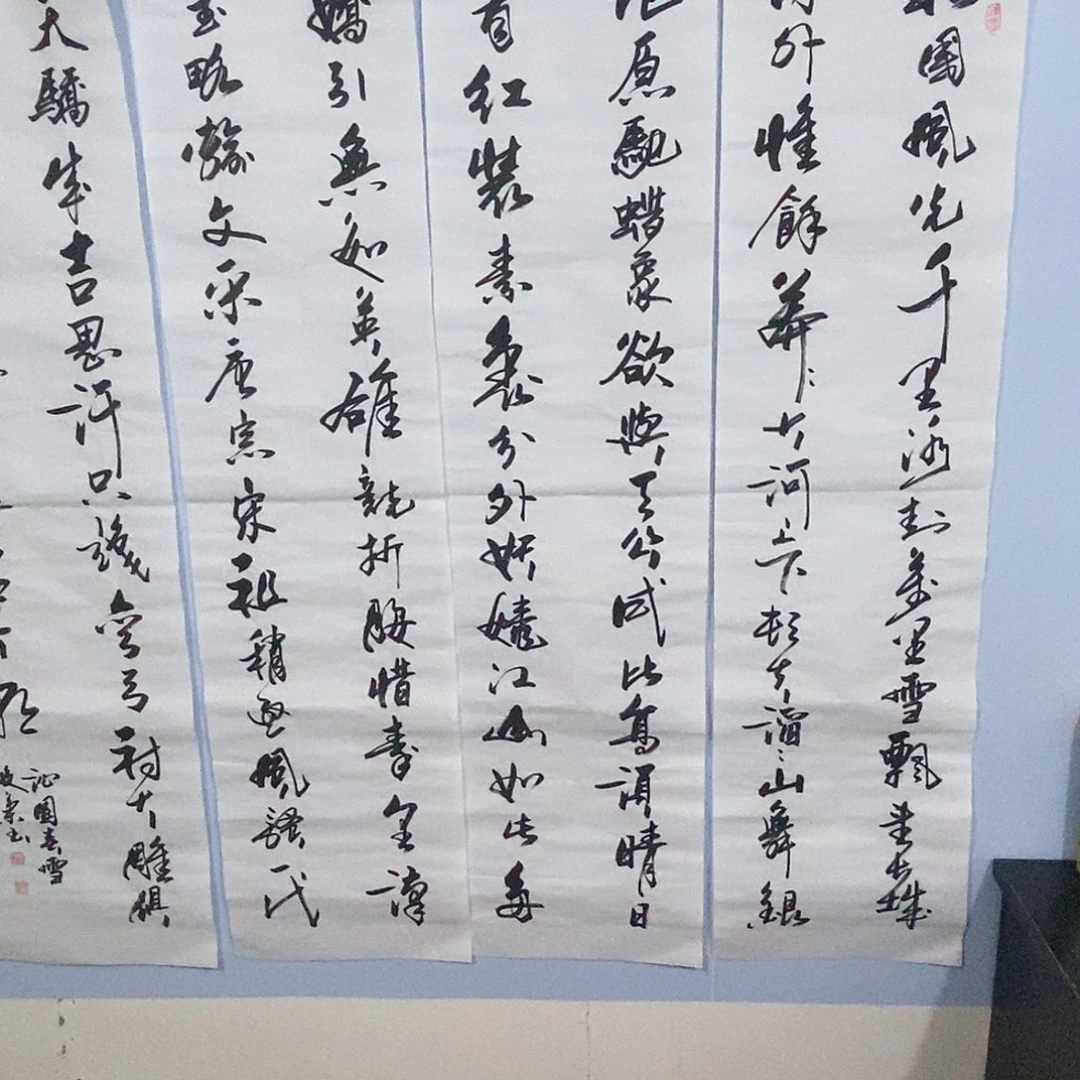 國風光千里冰封萬里雪飄望長城
外惟餘莽々大河上下頓失滔々山舞銀
原馳蜡象欲與天公試比高須晴日
紅裝素裹分外妖嬈江山如此多
嬌引無數英雄競折腰惜秦皇漢
略輸文采唐宗宋祖稍遜風騷一代
天驕成吉思汗只識彎弓射大雕俱
沁園春雪